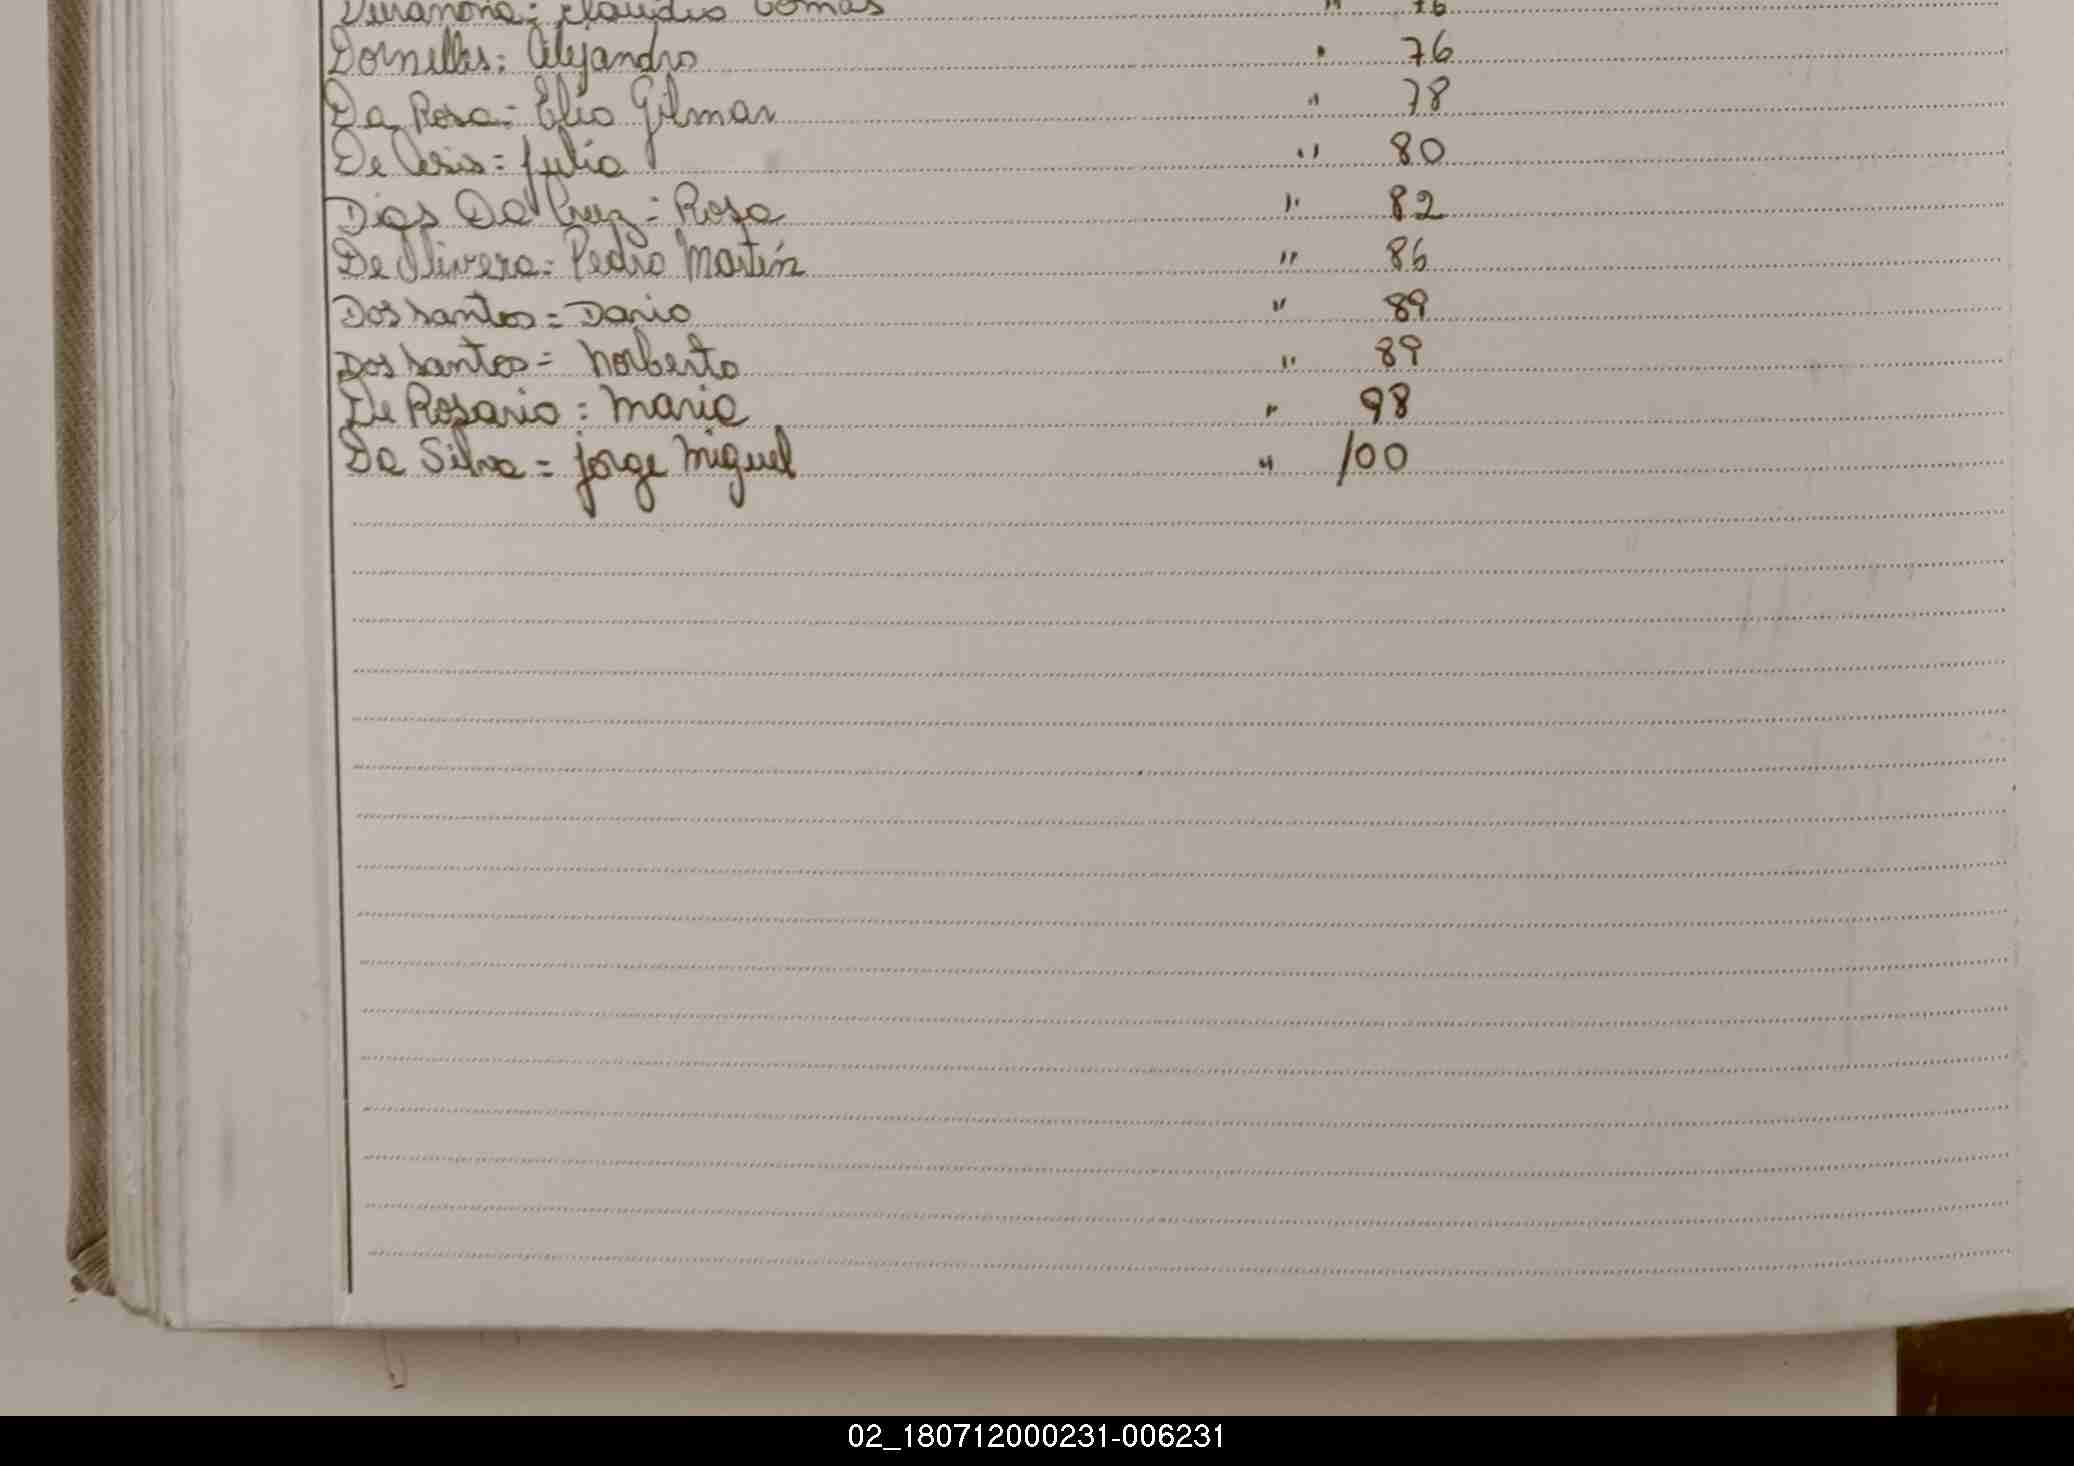 Duranona: Claudio Tomas " 76
Dornelles: Alejandro " 76
Da Rosa: Elio Gilmar " 78
De = Julio " 80
Dias Da Cruz = Rosa " 82
De Olivera = Pedro Martín " 86
Dos Santos = Dario " 89
Dos Santos = Norberto " 89
De Rosario: Maria " 98
Da Silva = Jorge Miguel " 100
02_180712000231-006231